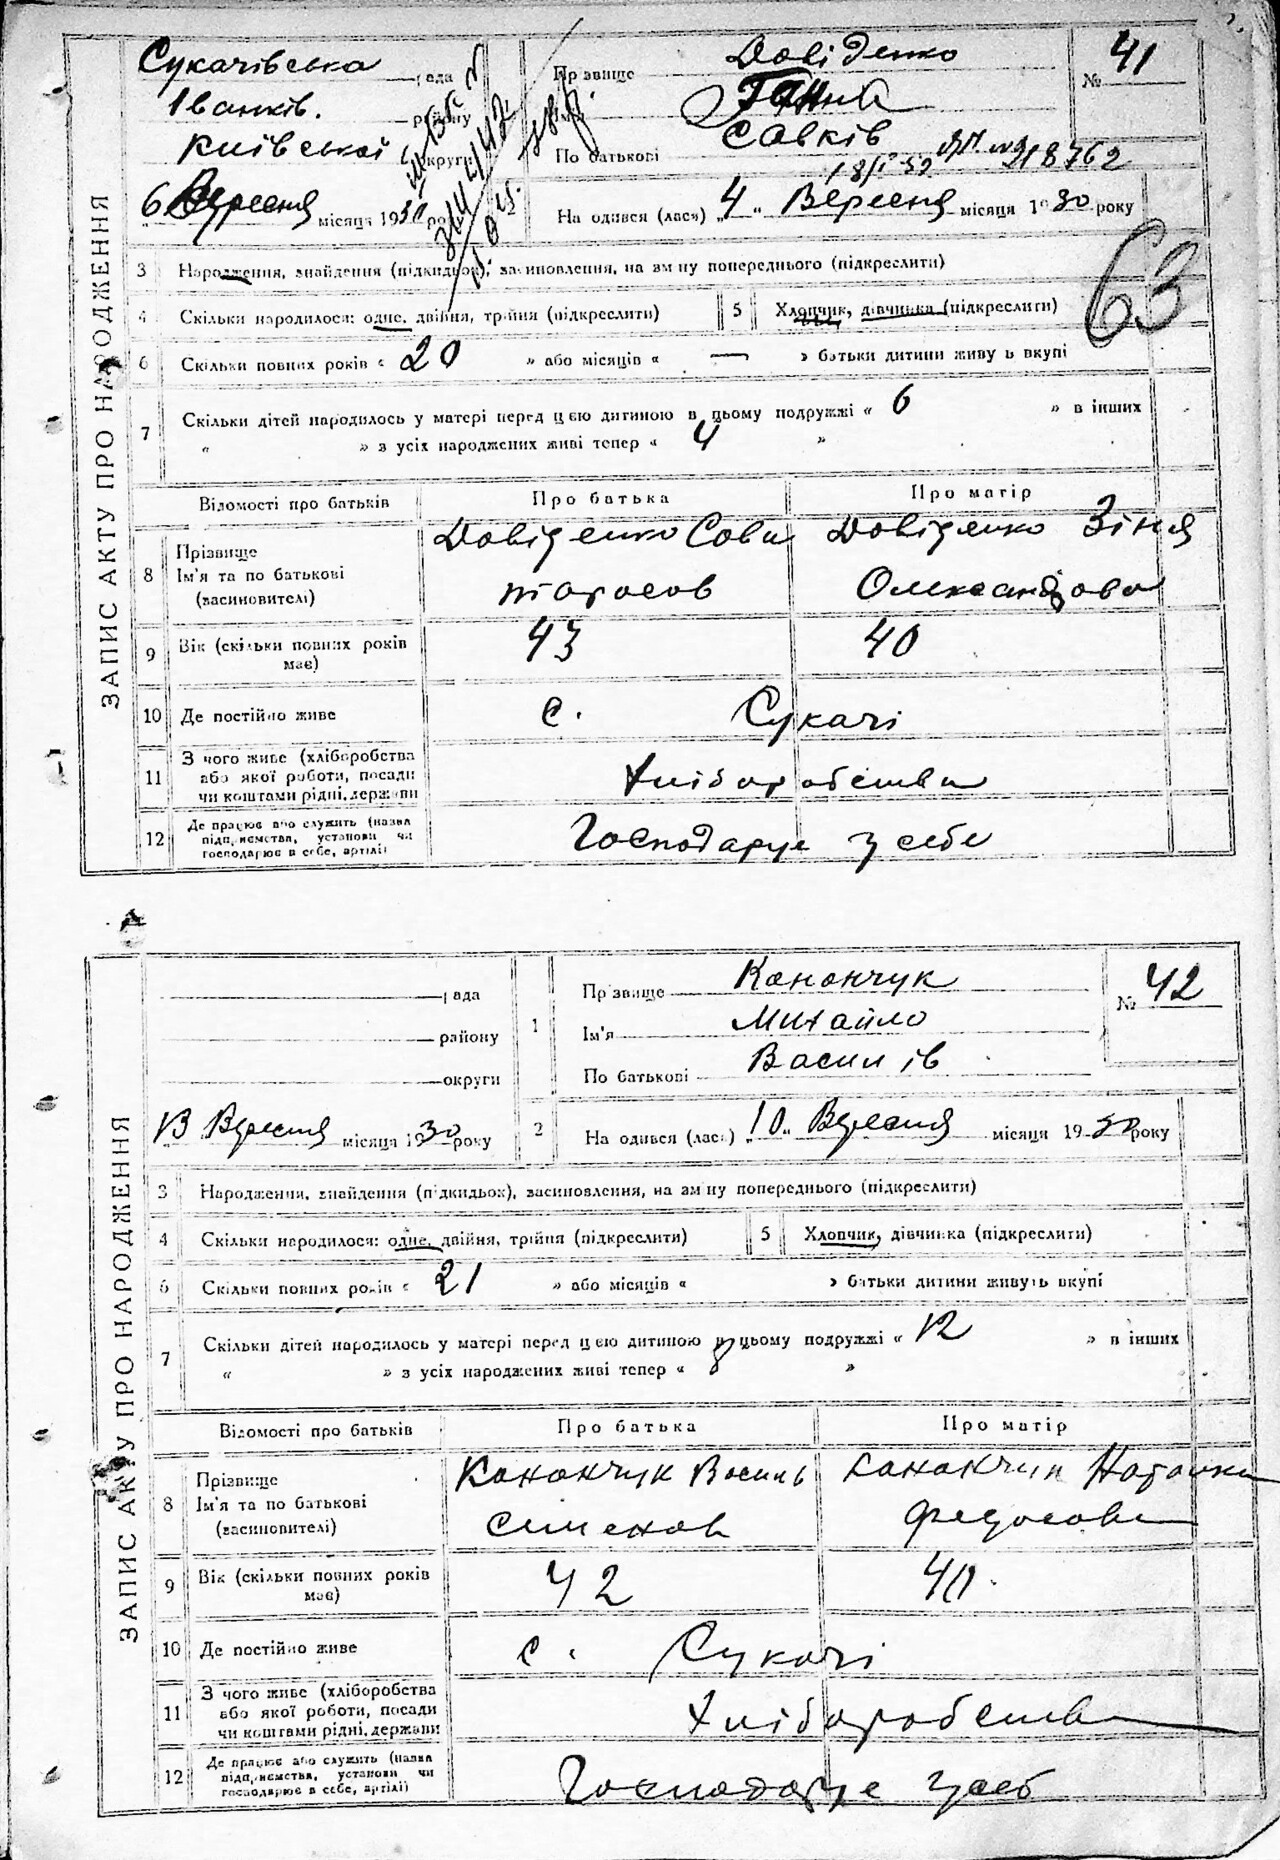 ЗАПИС АКТУ ПРО НАРОДЖЕННЯ
Сукачівська рада
Іванків. району
Київської округи
6 Вересня місяця 1930 року
Прізвище Довіденко
Ім'я Ганна
По батькові Савків
№ 41
18/І-52 918762
На одився (лася) „4“ Вересня місяця 1930 року
63
3 Народження, знайдення (підкидьок), засиновлення, на зміну попереднього (підкреслити)
4 Скільки народилося: одне, двійня, трійня (підкреслити)
5 Хлопчик, дівчинка (підкреслити)
6 Скільки повних років « 20 » або місяців « — » батьки дитини живуть вкупі
7 Скільки дітей народилось у матері перед цією дитиною в цьому подружжі « 6 » в інших
« » з усіх народжених живі тепер « 4 »
Відомості про батьків Про батька Про матір
8 Прізвище Ім'я та по батькові (засиновителі)
Довіденко Сова Довіденко Зіня
тарасов Олександрова
9 Вік (скільки повних років має) 43 40
10 Де постійно живе с. Сукачі
11 З чого живе (хліборобства або якої роботи, посади чи коштами рідні, держави Хліборобства
12 Де працює або служить (назва підприємства, установи чи господарює в себе, артілі) Господарує у себе
ЗАПИС АКТУ ПРО НАРОДЖЕННЯ
рада
району
округи
13 Вересня місяця 1930 року
1 Прізвище Канончук
Ім'я Михайло
По батькові Василів
№ 42
2 На одився (лась) „10“ Вересня місяця 1930 року
3 Народження, знайдення (підкидьок), засиновлення, на зміну попереднього (підкреслити)
4 Скільки народилося: одне, двійня, трійня (підкреслити)
5 Хлопчик, дівчинка (підкреслити)
6 Скільки повних років « 21 » або місяців « » батьки дитини живуть вкупі
7 Скільки дітей народилось у матері перед цією дитиною в цьому подружжі « 12 » в інших
« » з усіх народжених живі тепер « 8 »
Відомості про батьків Про батька Про матір
8 Прізвище Ім'я та по батькові (засиновителі)
Канончук Василь Канончук Наталка
Семенов Федосова
9 Вік (скільки повних років має) 42 40
10 Де постійно живе с. Сукачі
11 З чого живе (хліборобства або якої роботи, посади чи коштами рідні, держави Хліборобства
12 Де працює або служить (назва підприємства, установи чи господарює в себе, артілі) Господарує у себ